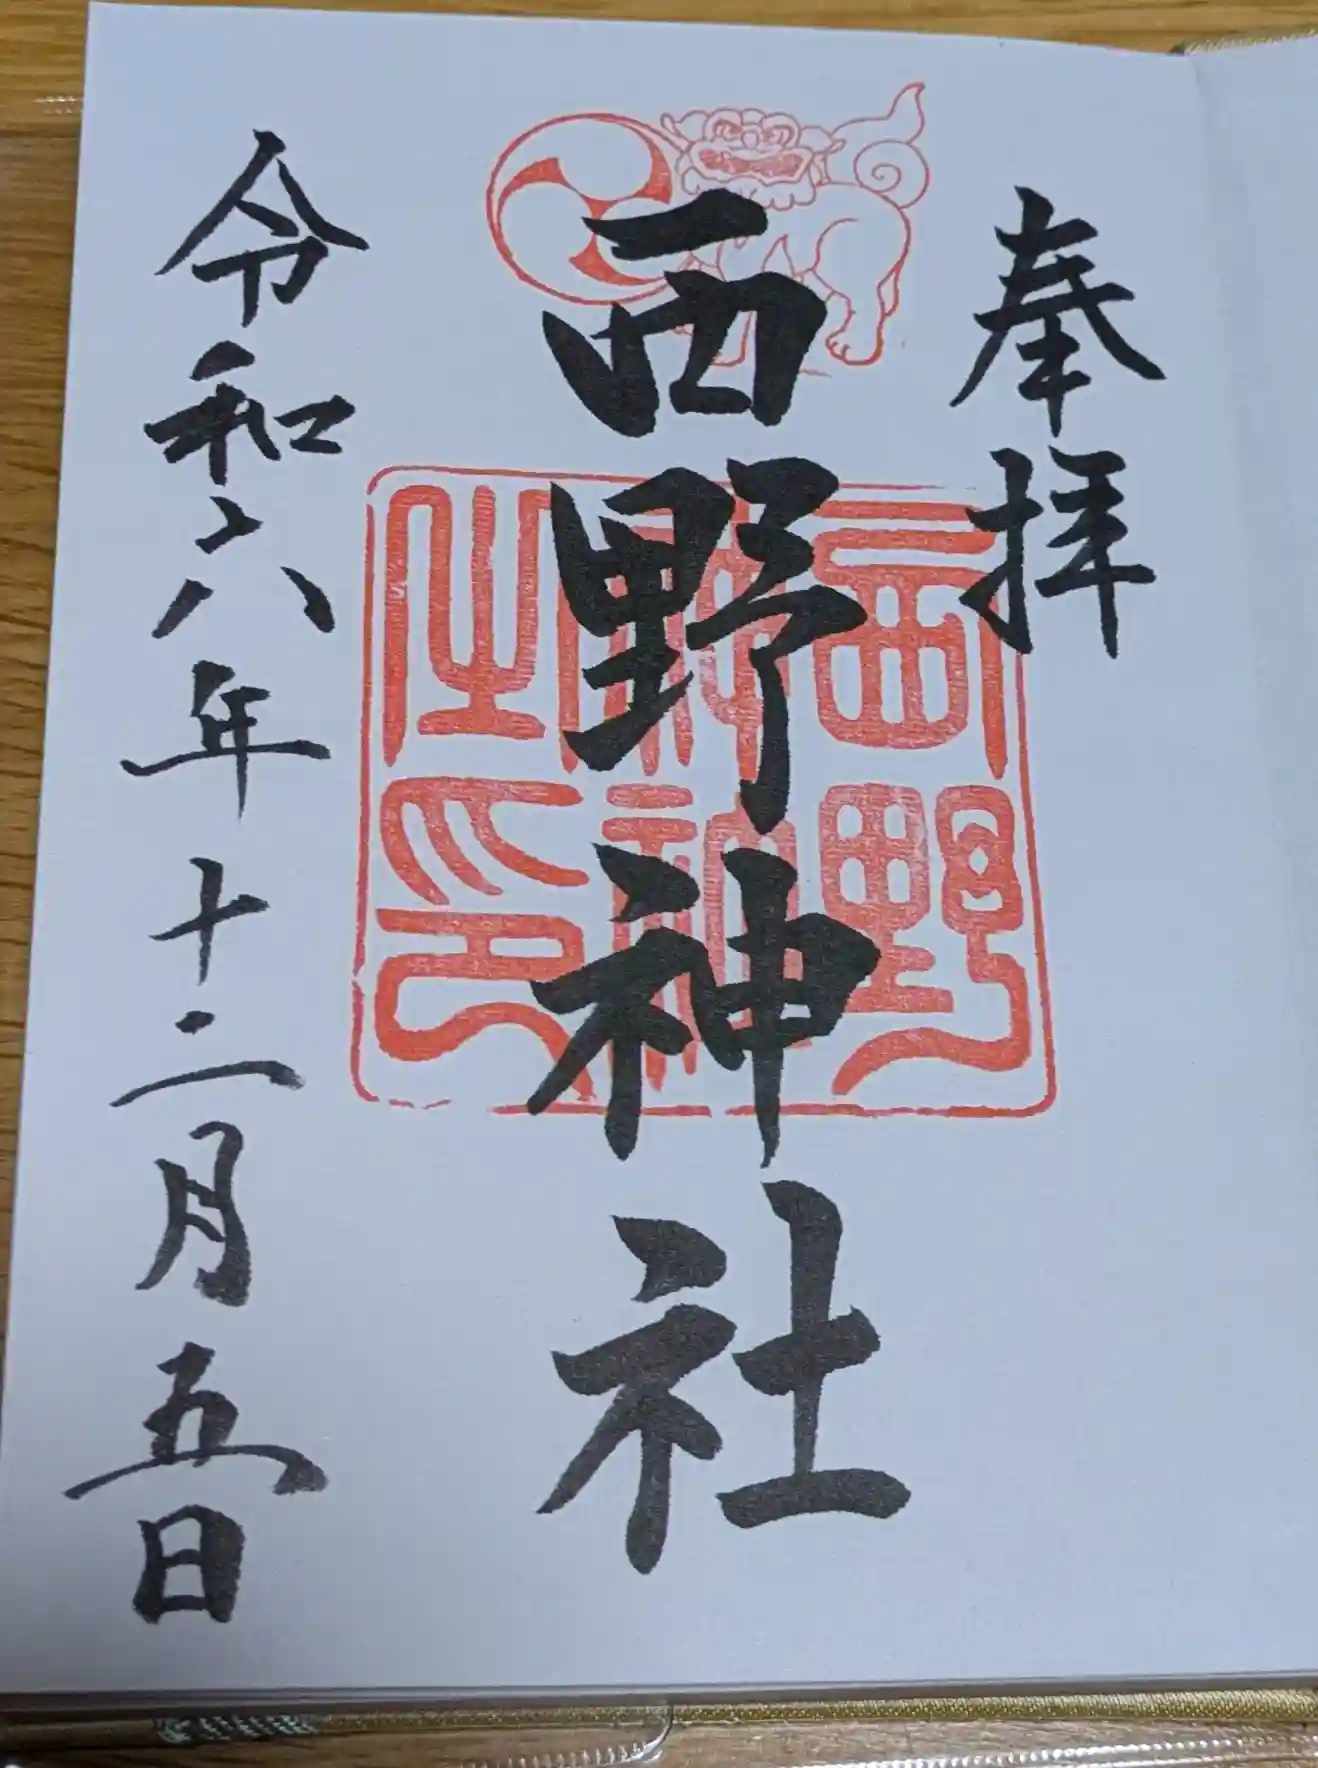 奉拝
西野神社
西野
神社
之印
令和六年十二月五日